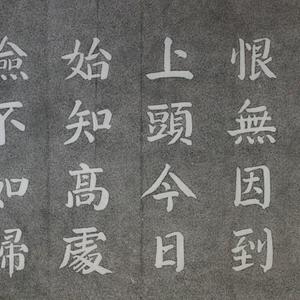 恨無因到
上頭今日
始知高處
險不如歸